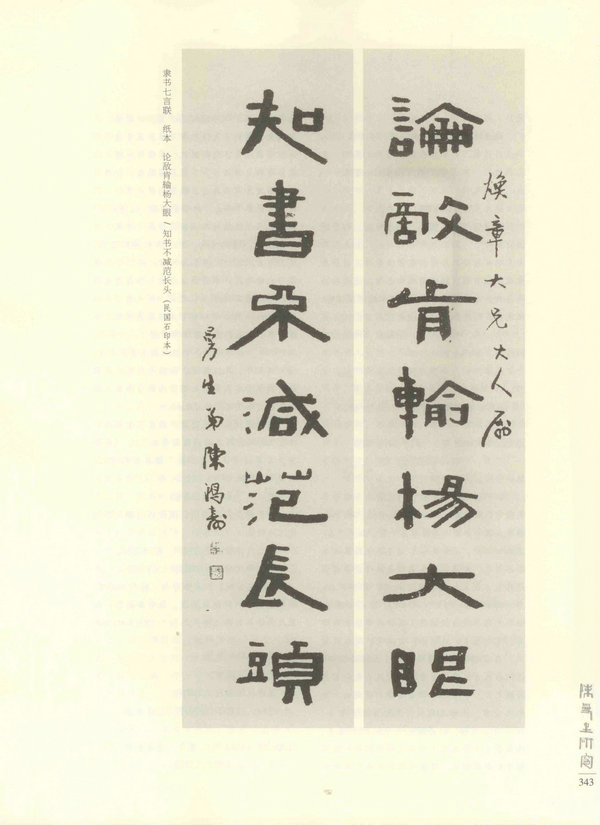 煥章大兄大人屬
論敵肯輸楊大眼
知書不減范長頭
曼生弟陳鴻壽
隶书七言联　纸本　论敌肯输杨大眼/知书不减范长头（民国石印本）
343